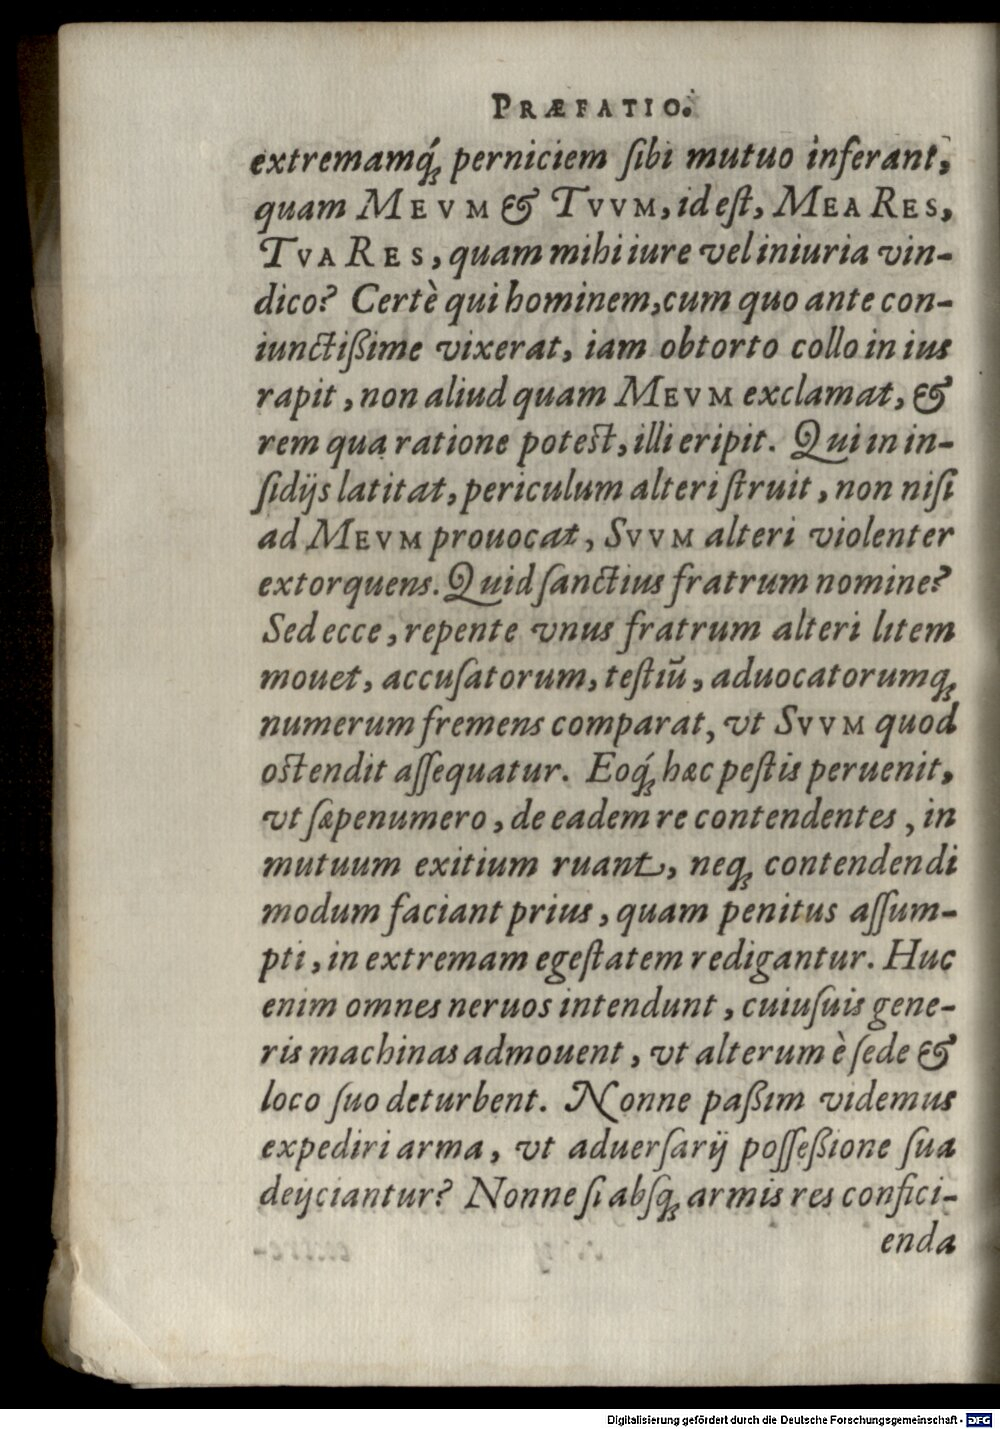 PRÆFATIO.
extremamq́; perniciem ſibi mutuo inferant,
quam MEVM & TVVM, id eſt, MEA RES,
TVA RES, quam mihi iure vel iniuria vin-
dico? Certè qui hominem, cum quo ante con-
iunctißime vixerat, iam obtorto collo in ius
rapit, non aliud quam MEVM exclamat, &
rem qua ratione poteſt, illi eripit. Qui in in-
ſidijs latitat, periculum alteri ſtruit, non niſi
ad MEVM prouocat, SVVM alteri violenter
extorquens. Quid ſanctius fratrum nomine?
Sed ecce, repente vnus fratrum alteri litem
mouet, accuſatorum, teſtiū, aduocatorumq;
numerum fremens comparat, vt SVVM quod
oſtendit aſſequatur. Eoq́; hæc peſtis peruenit,
vt ſæpenumero, de eadem re contendentes, in
mutuum exitium ruant, neq; contendendi
modum faciant prius, quam penitus aſſum-
pti, in extremam egeſtatem redigantur. Huc
enim omnes neruos intendunt, cuiuſuis gene-
ris machinas admouent, vt alterum è ſede &
loco ſuo deturbent. Nonne paßim videmus
expediri arma, vt aduerſarij poſſeßione ſua
deijciantur? Nonne ſi abſq; armis res confici-
enda
Digitalisierung gefördert durch die Deutsche Forschungsgemeinschaft - DFG